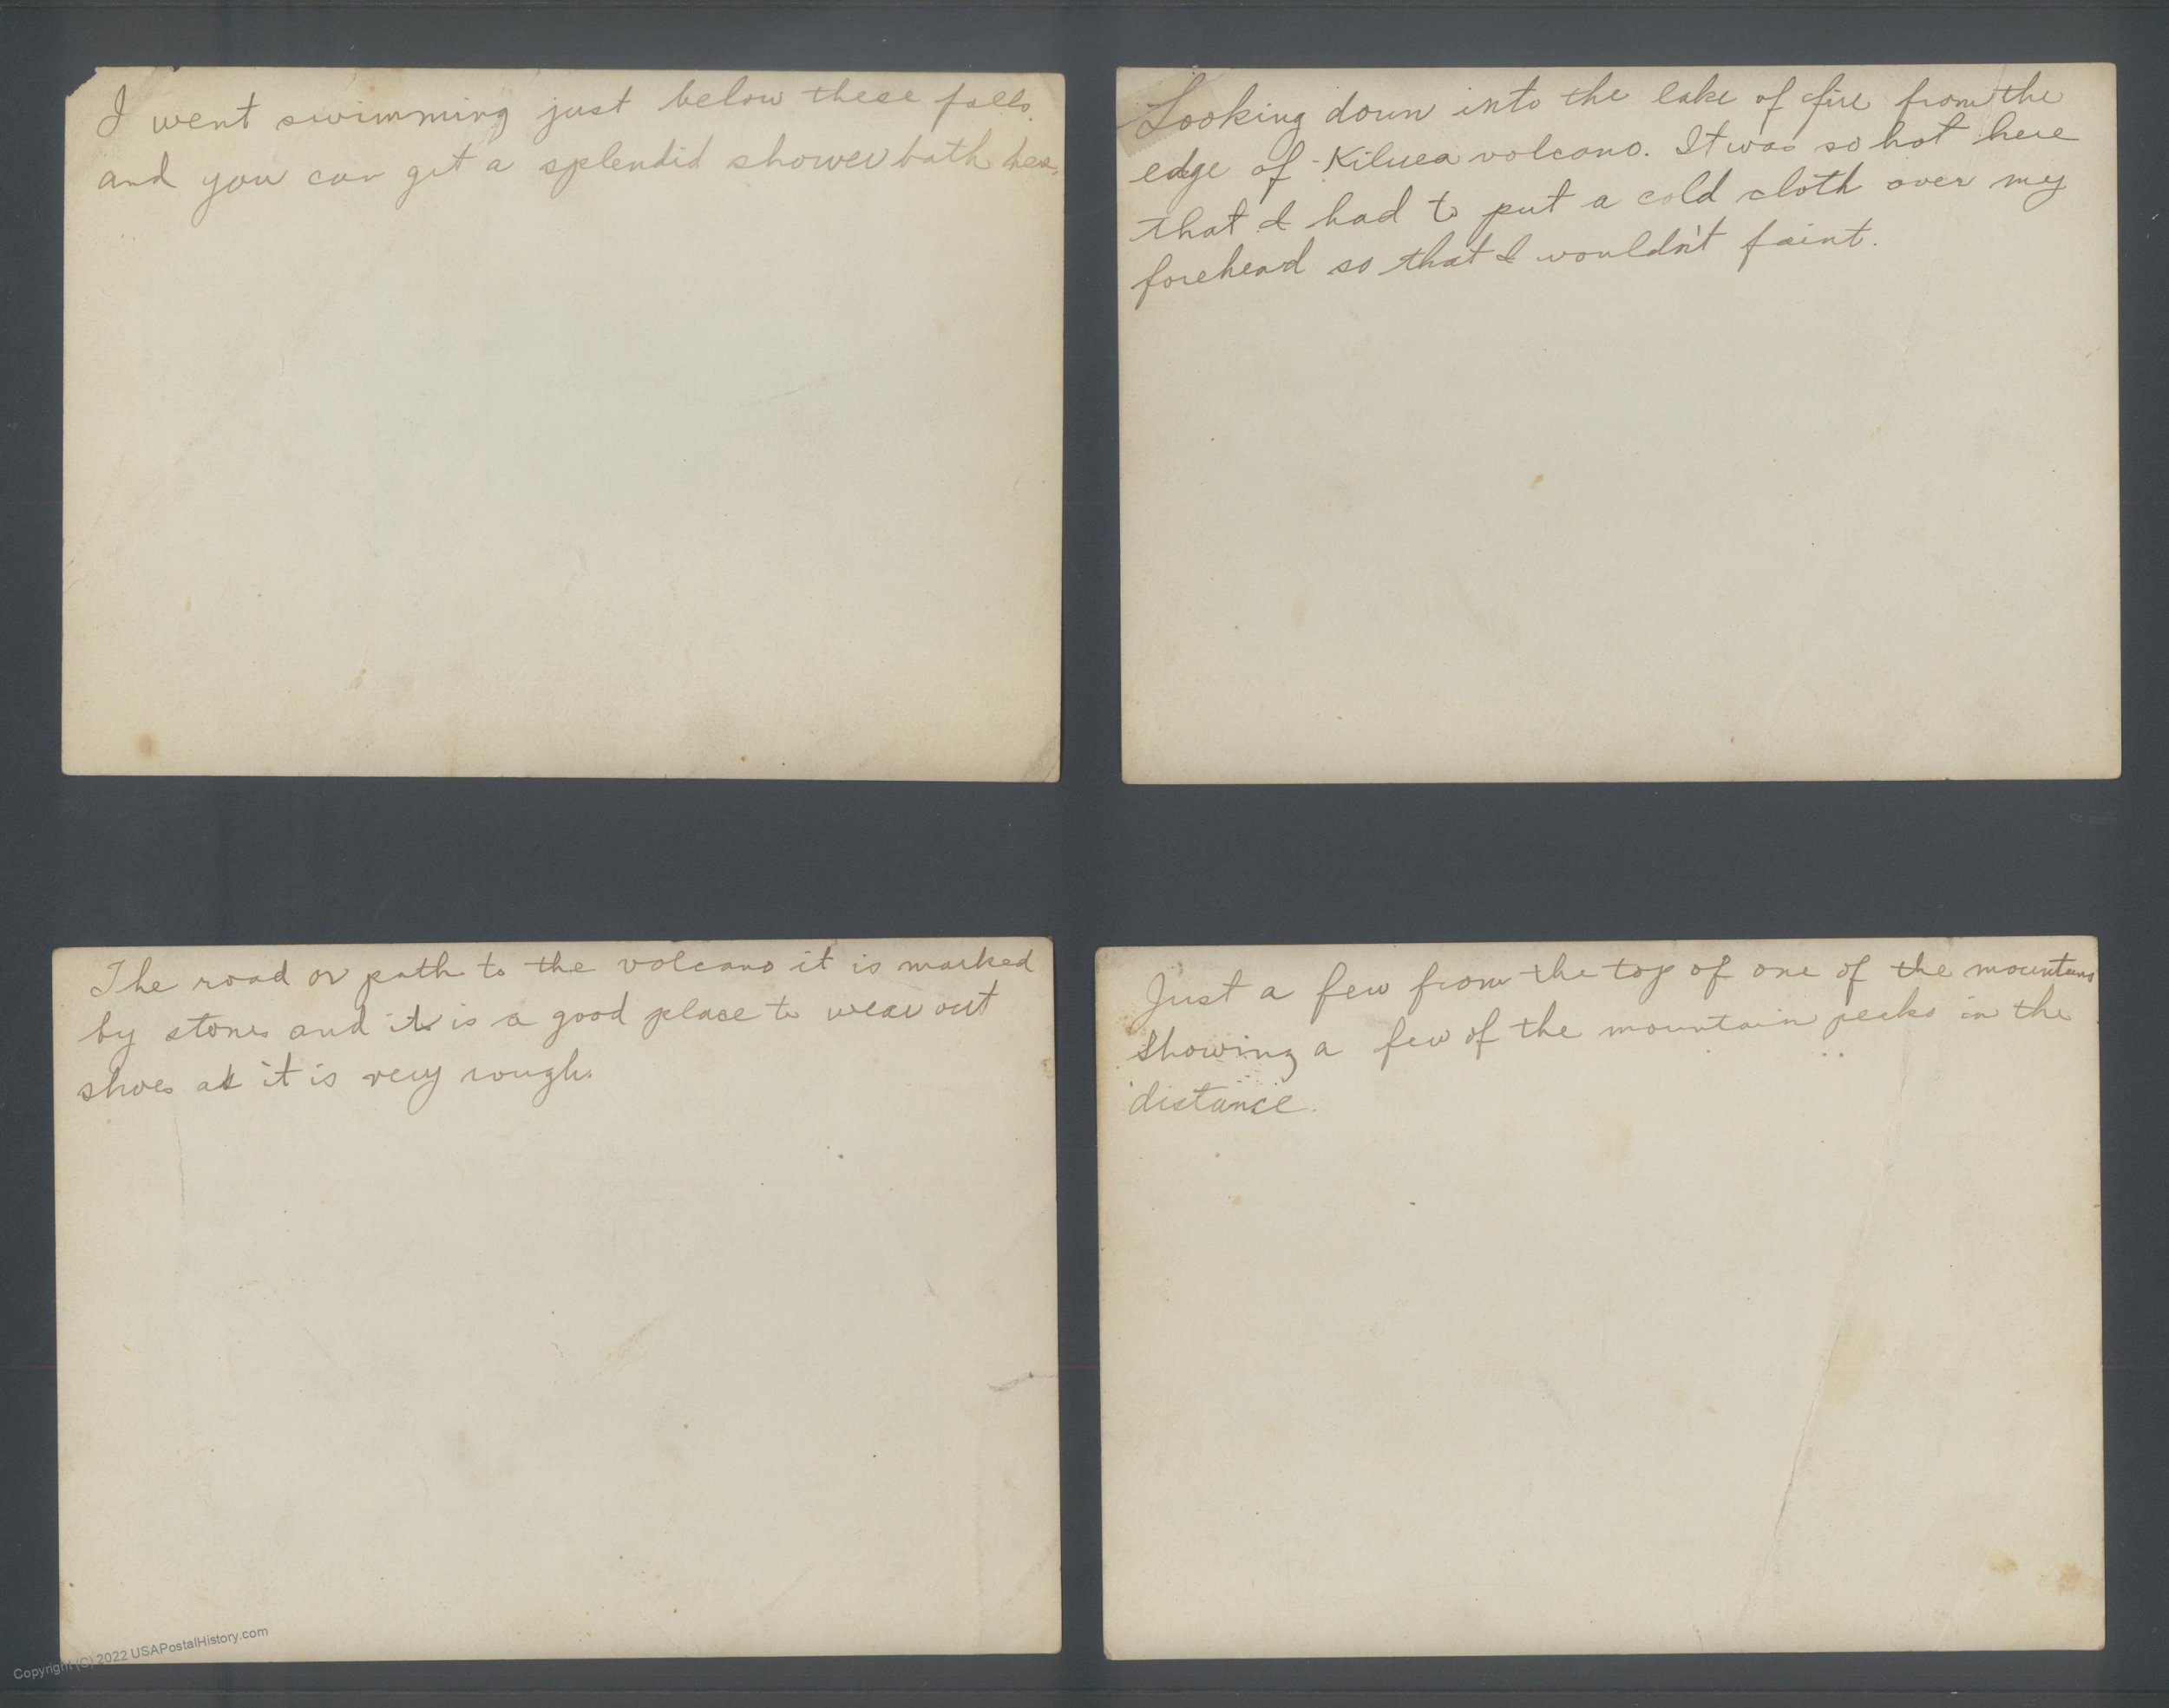 I went swimming just below these falls.
and you can get a splendid shower bath here.
Looking down into the lake of fire from the
edge of Kiluea volcano. It was so hot here
that I had to put a cold cloth over my
forehead so that I wouldn't faint.
The road or path to the volcano it is marked
by stones and it is a good place to wear out
shoes as it is very rough.
Just a few from the top of one of the mountains
showing a few of the mountain peaks in the
distance.
Copyright (C) 2022 USAPostalHistory.com